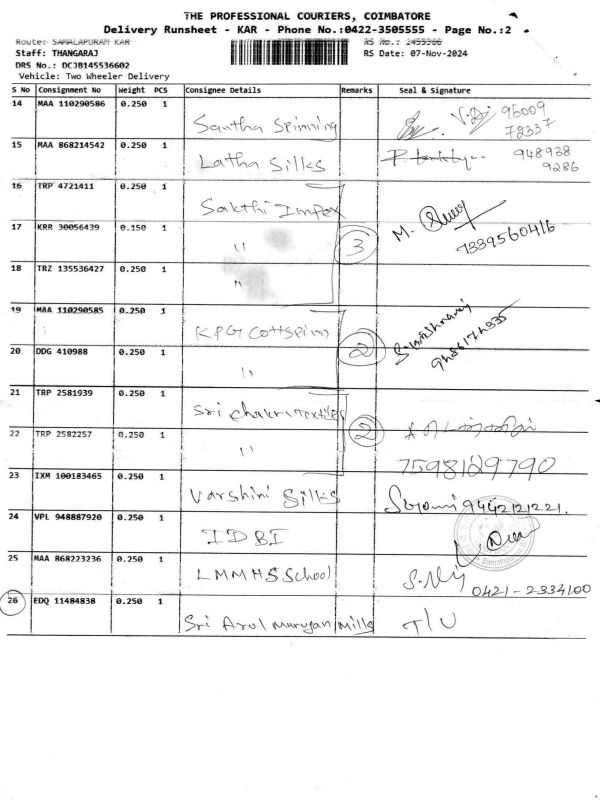 THE PROFESSIONAL COURIERS, COIMBATORE
Delivery Runsheet - KAR - Phone No.:0422-3505555 - Page No.:2
Route: SAMALAPURAM KAR
Staff: THANGARAJ RS Date: 07-Nov-2024
DRS No.: DCJB145536602
Vehicle: Two Wheeler Delivery
S No Consignment No Weight PCS Consignee Details Remarks Seal & Signature
14 MAA 110290586 0.250 1 Santha Spinning 96009 72337
15 MAA 868214542 0.250 1 Latha Silks 948938 9286
16 TRP 4721411 0.250 1 Sakthi Impex
17 KRR 30056439 0.150 1 " 3 M. 7339560416
18 TRZ 135536427 0.250 1 "
19 MAA 110290585 0.250 1 KPG Cottspinn
20 DDG 410988 0.250 1 " 2
21 TRP 2581939 0.250 1 Sri Chakri Textiles
22 TRP 2582257 0.250 1 " 2 7598129790
23 IXM 100183465 0.250 1 Varshini Silks 9442121221.
24 VPL 948887920 0.250 1 IDBI
25 MAA 868223236 0.250 1 LMMHS School 0421-2334100
26 EDQ 11484838 0.250 1 Sri Arul Murugan Mills T/U